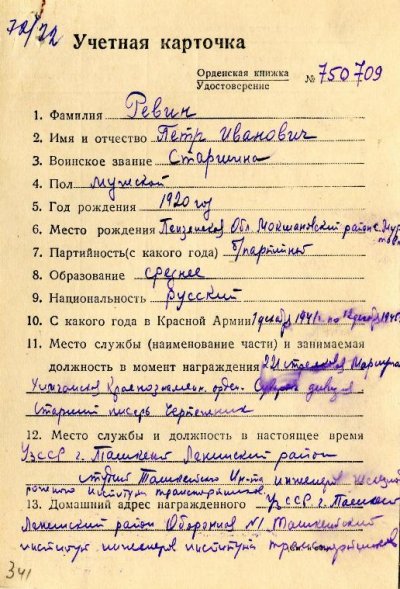 70/22
Учетная карточка
Орденская книжка
Удостоверение
№ 750709
1. Фамилия Ревин
2. Имя и отчество Петр Иванович
3. Воинское звание Старшина
4. Пол мужской
5. Год рождения 1920 год
6. Место рождения Пензенская Обл. Мокшановский район с.
7. Партийность (с какого года) б/партийный
8. Образование среднее
9. Национальность русский
10. С какого года в Красной Армии 1 декабр 1941 по
11. Место службы (наименование части) и занимаемая
должность в момент награждения 221 стрелковая
Краснознамен. орден. Суворова дивизия
Старший писарь чертежник
12. Место службы и должность в настоящее время
УзССР г. Ташкент Ленинский район
студент Ташкентского Ин-та инженеров
института
13. Домашний адрес награжденного УзССР г. Ташкент
Ленинский район Оборонная №1 Ташкентский
институт инженеров института
341